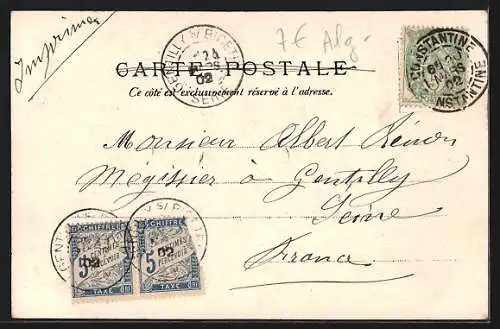 Imprimé
7€ Alg.
GENTILLY S/ BICETRE
02
SEINE
CONSTANTINE
02
CONSTANTINE
CARTE POSTALE
Ce côté est exclusivement réservé à l'adresse.
Monsieur Albert
Mégissier à Gentilly
Seine
France
CHIFFRE CHIFFRE
5 5
CENTIMES CENTIMES
À PERCEVOIR À PERCEVOIR
02 02
TAXE TAXE